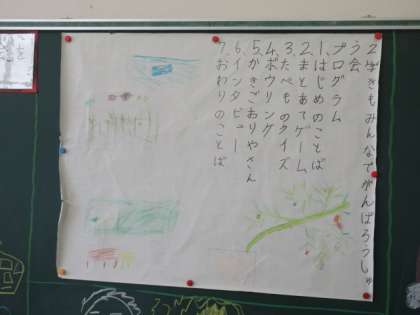 2がっきもみんなでがんばろうしゅ
う会
プログラム
1.はじめのことば
2.まとあてゲーム
3.たべものクイズ
4.ボウリング
5.かきごおりやさん
6.インタビュー
7.おわりのことば